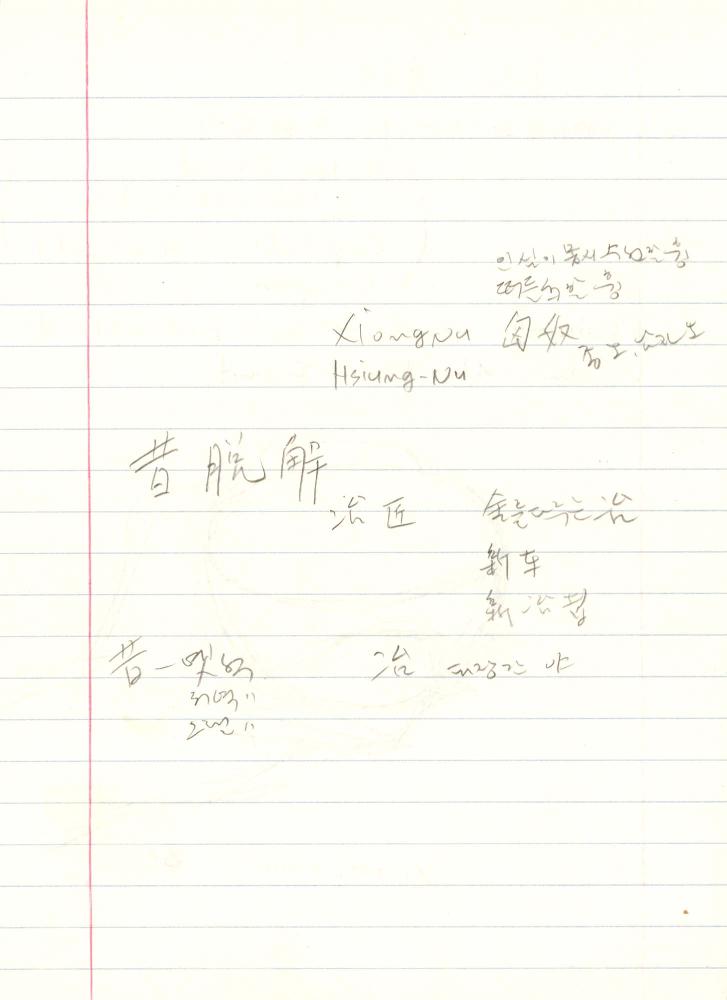 인심이 몹시 수선할 흉
떠들석할 흉
Xiongnu 匈奴 종 노.
Hsiung-Nu
昔 脫 解
冶 匠 쇠를 다루는 冶
新车
新冶
昔 - 옛 석
저녁 〃
오랠 〃
冶 대장간 야